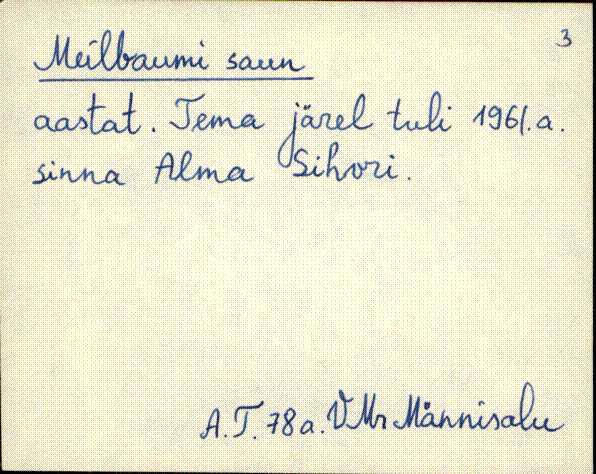 3
Meilbaumi saun
aastat. Tema järel tuli 1961.a.
sinna Alma Sihvri.
A.T. 78a. VMr Männisalu